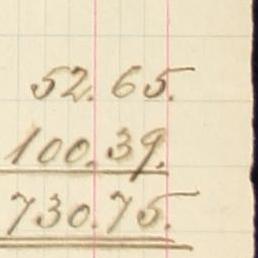 52.65.
100.39.
730.75.